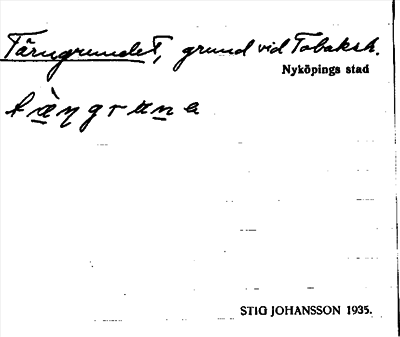 Tärngrundet, grund vid Tobaksh.
Nyköpings stad
tæ̀ŋgruna
STIG JOHANSSON 1935.